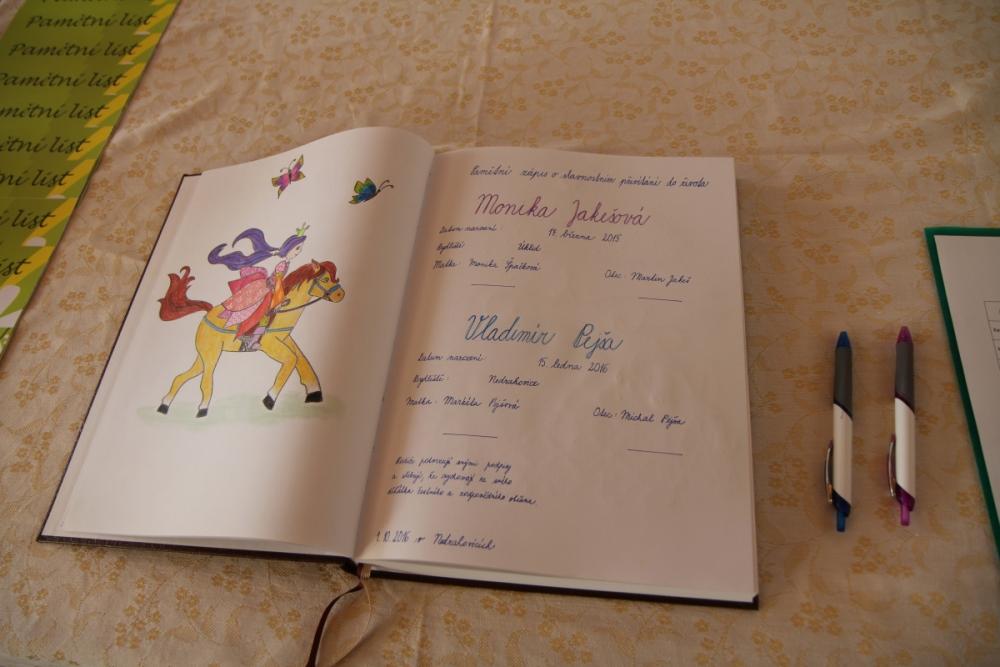 Pamětní list
Pamětní list
Pamětní list
Pamětní list
Pamětní list
Pamětní zápis o slavnostním přivítání do života
Monika Jakešová
Datum narození: 17. března 2015
Bydliště: Úklid
Matka: Monika Špačková Otec: Martin Jakeš
Vladimír Pejša
Datum narození: 15. ledna 2016
Bydliště: Nedrahovice
Matka: Markéta Pejšová Otec: Michal Pejša
Rodiče potvrzují svými podpisy
a slibují, že vychovají ze svého
děťátka čestného a zodpovědného občana.
1. 10. 2016 v Nedrahovicích